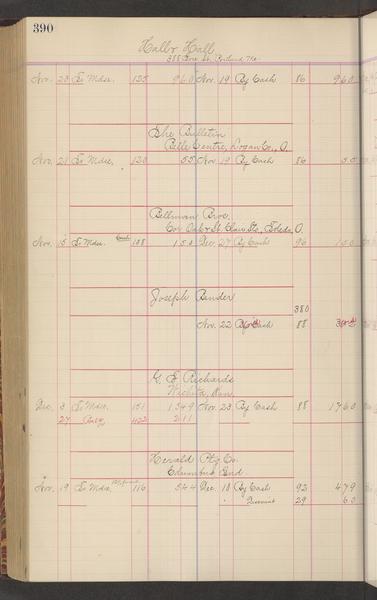 390
Hall & Hall
388 Fore St. Portland Me.
Nov. 23 To Mdse. 125 9 60 Nov. 19 By Cash 86 9 60
The Bulletin
Belle Centre, Logan Co., O.
Nov. 21 To Mdse. 120 55 Nov. 19 By Cash 86 55
Bellman Bros.
Cor. Oak & St. Clair Sts., Toledo, O.
Nov. 15 To Mdse. 108 1 50 Dec. 27 By Cash 96 1 50
Joseph Bender
380
Nov. 22 By Cash 88
G. E. Richards
Wichita, Kan.
Dec. 3 To Mdse. 151 15 49 Nov. 23 By Cash 88 17 60
27 422 2 11
Herald Ptg Co.
Edinburg Ind.
Nov. 19 To Mdse. 116 5 44 Dec. 18 By Cash 92 4 79
" Discount 29 65